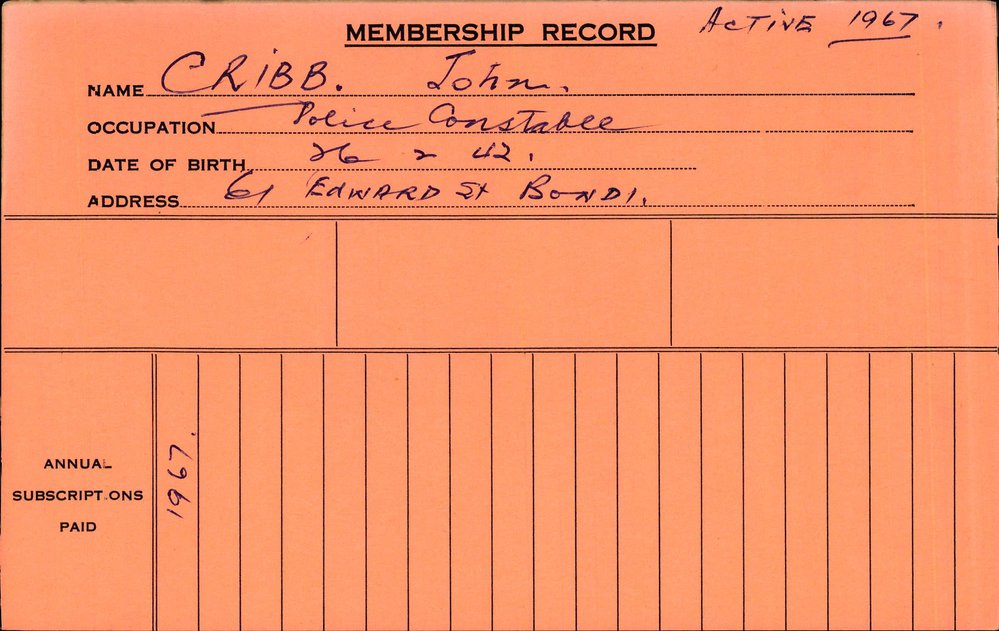 MEMBERSHIP RECORD ACTIVE 1967.
NAME CRIBB. John.
OCCUPATION Police Constable
DATE OF BIRTH 26 2 42.
ADDRESS 61 EDWARD St BONDI.
ANNUAL
SUBSCRIPTIONS
PAID
1967.